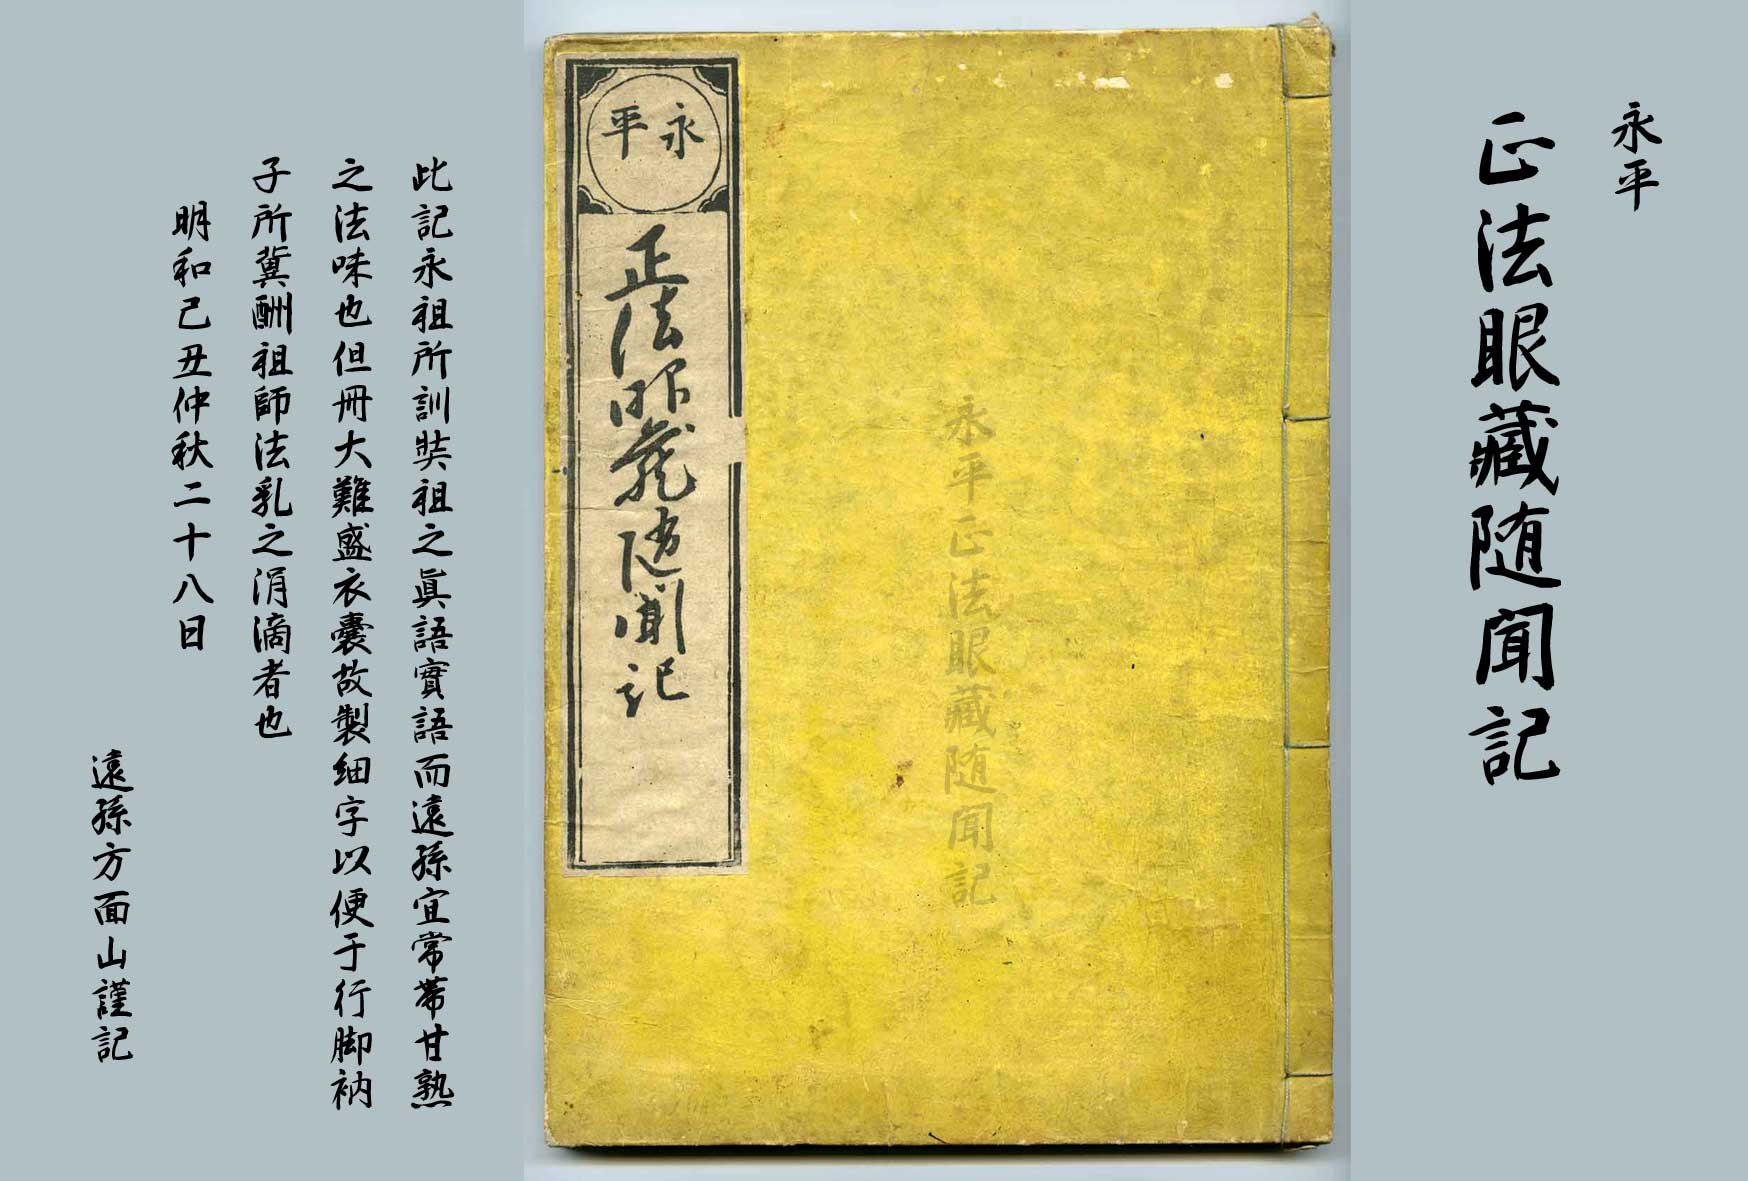 永平
正法眼藏随聞記
永平正法眼藏随聞記
永平
正法眼蔵随聞記
此記永祖所訓奘祖之眞語實語而遠孫宜常帯甘熟
之法味也但冊大難盛衣嚢故製細字以便于行脚衲
子所冀酬祖師法乳之涓滴者也
明和己丑仲秋二十八日
遠孫方面山謹記